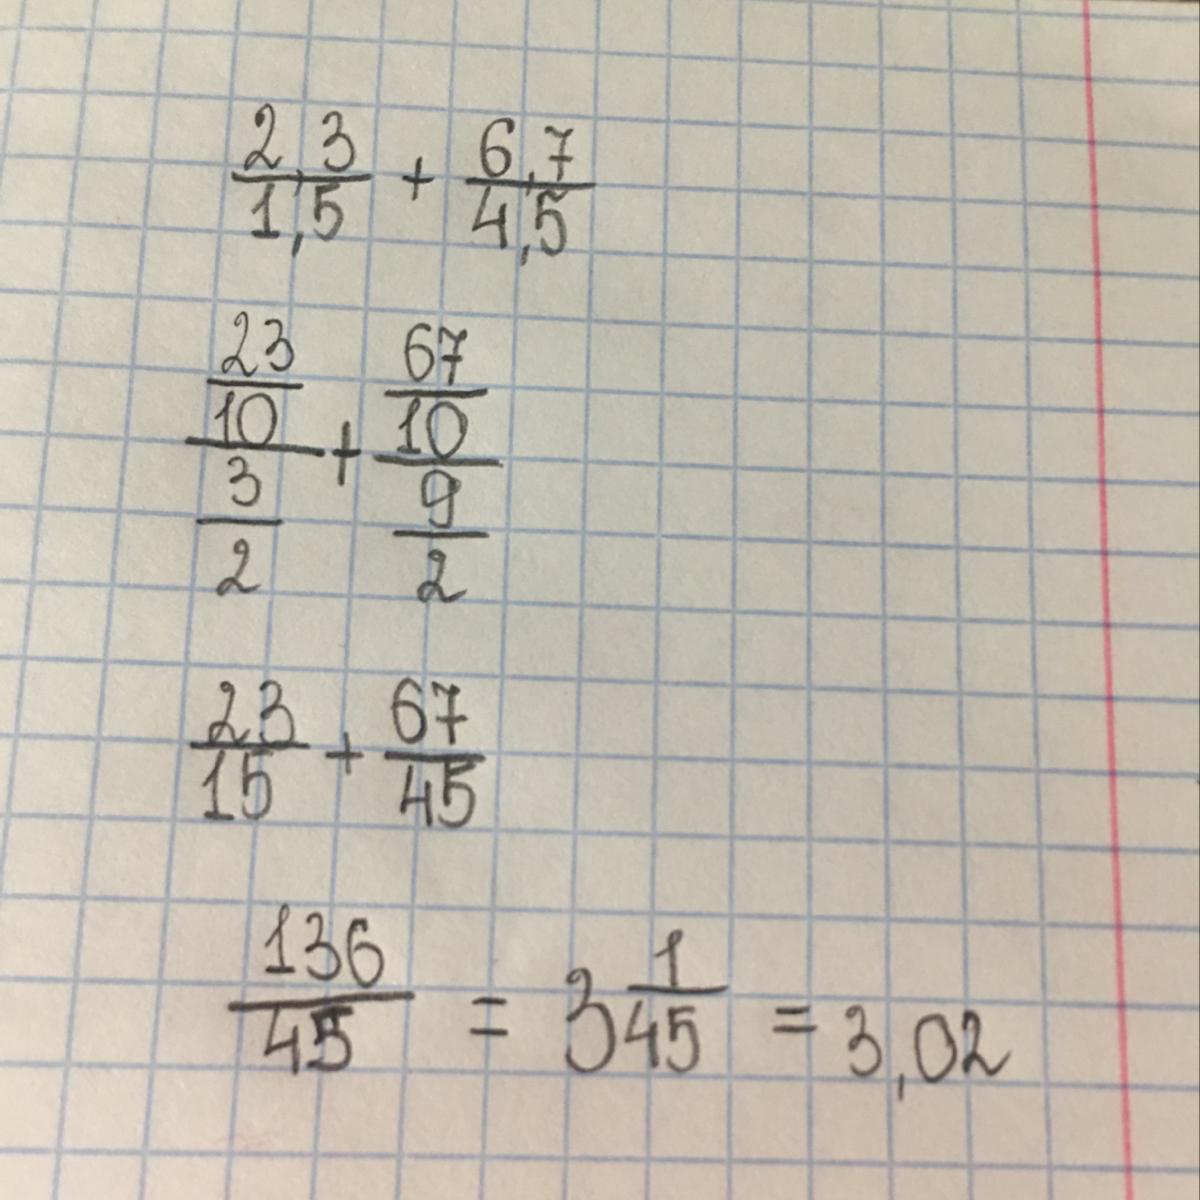 2,3/1,5 + 6,7/4,5
23/10 / 3/2 + 67/10 / 9/2
23/15 + 67/45
136/45 = 3 1/45 = 3,02